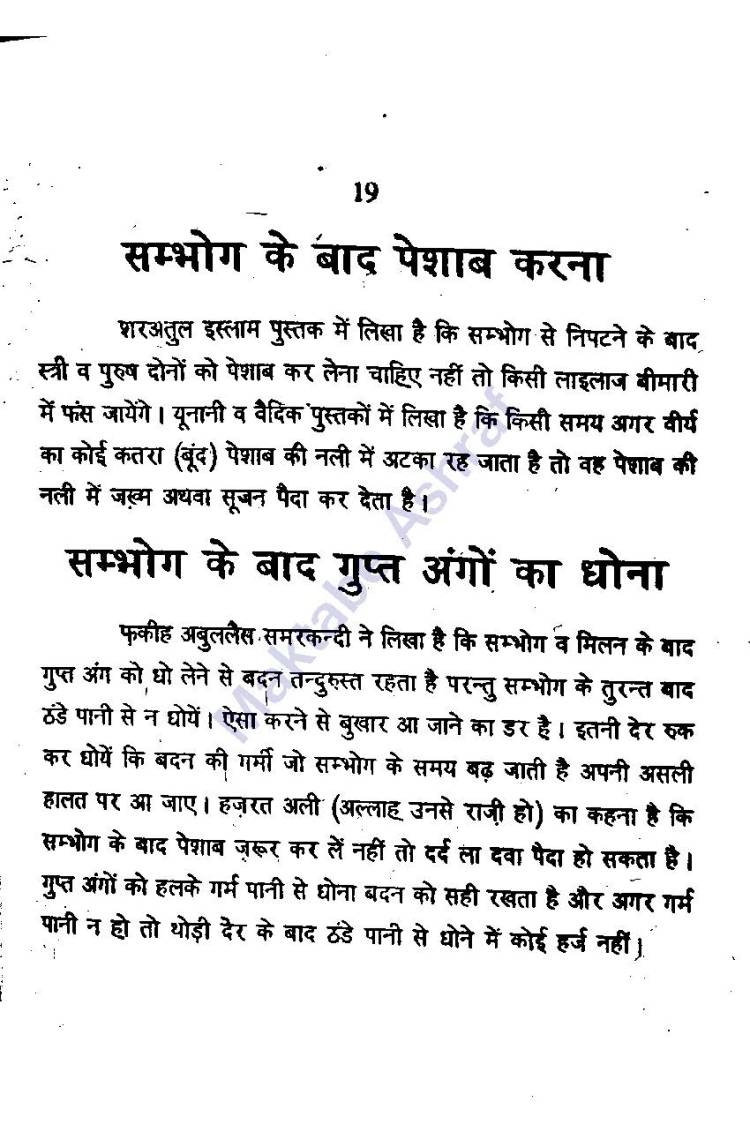 19
सम्भोग के बाद पेशाब करना
शरअतुल इस्लाम पुस्तक में लिखा है कि सम्भोग से निपटने के बाद
स्त्री व पुरुष दोनों को पेशाब कर लेना चाहिए नहीं तो किसी लाइलाज बीमारी
में फंस जायेंगे। यूनानी व वैदिक पुस्तकों में लिखा है कि किसी समय अगर वीर्य
का कोई कतरा (बूंद) पेशाब की नली में अटका रह जाता है तो वह पेशाब की
नली में जख़्म अथवा सूजन पैदा कर देता है।
सम्भोग के बाद गुप्त अंगों का धोना
फ़कीह अबुललैस समरकन्दी ने लिखा है कि सम्भोग व मिलन के बाद
गुप्त अंग को धो लेने से बदन तन्दुरुस्त रहता है परन्तु सम्भोग के तुरन्त बाद
ठंडे पानी से न धोयें। ऐसा करने से बुखार आ जाने का डर है। इतनी देर रुक
कर धोयें कि बदन की गर्मी जो सम्भोग के समय बढ़ जाती है अपनी असली
हालत पर आ जाए। हज़रत अली (अल्लाह उनसे राज़ी हो) का कहना है कि
सम्भोग के बाद पेशाब ज़रूर कर लें नहीं तो दर्द ला दवा पैदा हो सकता है।
गुप्त अंगों को हलके गर्म पानी से धोना बदन को सही रखता है और अगर गर्म
पानी न हो तो थोड़ी देर के बाद ठंडे पानी से धोने में कोई हर्ज नहीं।
Maktabe Ashraf